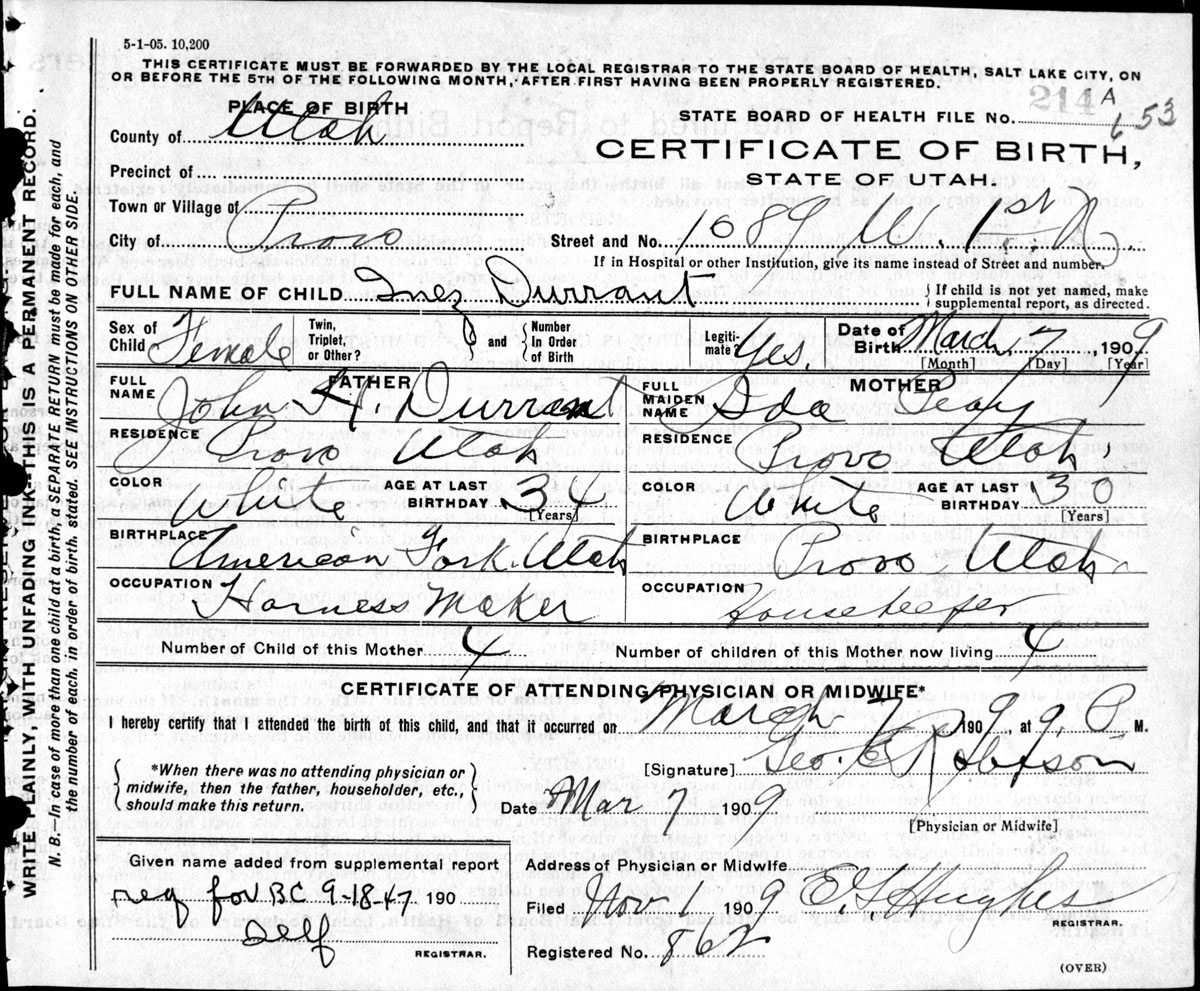 5-1-05. 10,200
THIS CERTIFICATE MUST BE FORWARDED BY THE LOCAL REGISTRAR TO THE STATE BOARD OF HEALTH, SALT LAKE CITY, ON
OR BEFORE THE 5TH OF THE FOLLOWING MONTH, AFTER FIRST HAVING BEEN PROPERLY REGISTERED.
214 A
PLACE OF BIRTH
STATE BOARD OF HEALTH FILE No. 653
County of Utah
CERTIFICATE OF BIRTH,
Precinct of
STATE OF UTAH.
Town or Village of
City of Provo Street and No. 1089 W. 1st N
If in Hospital or other Institution, give its name instead of Street and number.
FULL NAME OF CHILD Inez Durrant { If child is not yet named, make supplemental report, as directed.
Sex of Child Female Twin, Triplet, or Other? and { Number In Order of Birth Legitimate? Yes. Date of Birth March 7 1909
[Month] [Day] [Year]
FATHER MOTHER
FULL NAME John H. Durrant FULL MAIDEN NAME Ida Peay
RESIDENCE Provo Utah RESIDENCE Provo Utah
COLOR White AGE AT LAST BIRTHDAY 34 [Years] COLOR White AGE AT LAST BIRTHDAY 30 [Years]
BIRTHPLACE American Fork Utah BIRTHPLACE Provo Utah
OCCUPATION Harness Maker OCCUPATION Housekeeper
Number of Child of this Mother 4 Number of children of this Mother now living 4
CERTIFICATE OF ATTENDING PHYSICIAN OR MIDWIFE*
I hereby certify that I attended the birth of this child, and that it occurred on March 7 1909, at 9 P M.
{ *When there was no attending physician or midwife, then the father, householder, etc., should make this return. }
[Signature] Geo. E Robison
Date Mar 7 1909
[Physician or Midwife]
Given name added from supplemental report
req for BC 9-18-47 190
Self
REGISTRAR.
Address of Physician or Midwife
Filed Nov 1 1909 E. G Hughes
REGISTRAR.
Registered No. 862
(OVER)
WRITE PLAINLY, WITH UNFADING INK—THIS IS A PERMANENT RECORD.
N. B.—In case of more than one child at a birth, a SEPARATE RETURN must be made for each, and
the number of each, in order of birth, stated. SEE INSTRUCTIONS ON OTHER SIDE.